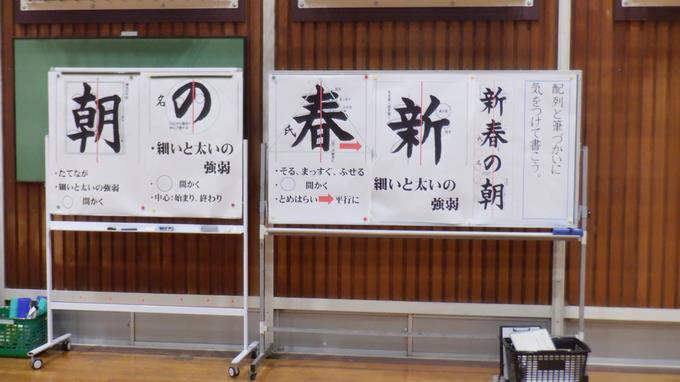 配列と筆づかいに
気をつけて書こう。
新春の朝
新
細いと太いの
強弱
春
氏
・そる、まっすぐ、ふせる
・○ 間かく
・とめはらい➡平行に
の
名
・細いと太いの
強弱
・○ 間かく
・中心:始まり、終わり
朝
・たてなが
・細いと太いの強弱
○ 間かく